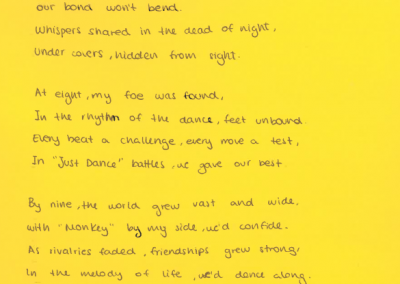 our bond won't bend.
Whispers shared in the dead of night,
Under covers, hidden from sight.
At eight, my foe was found,
In the rhythm of the dance, feet unbound.
Every beat a challenge, every move a test,
In "Just Dance" battles, we gave our best.
By nine, the world grew vast and wide,
with "Monkey" by my side, we'd confide.
As rivalries faded, friendships grew strong,
In the melody of life, we'd dance along.